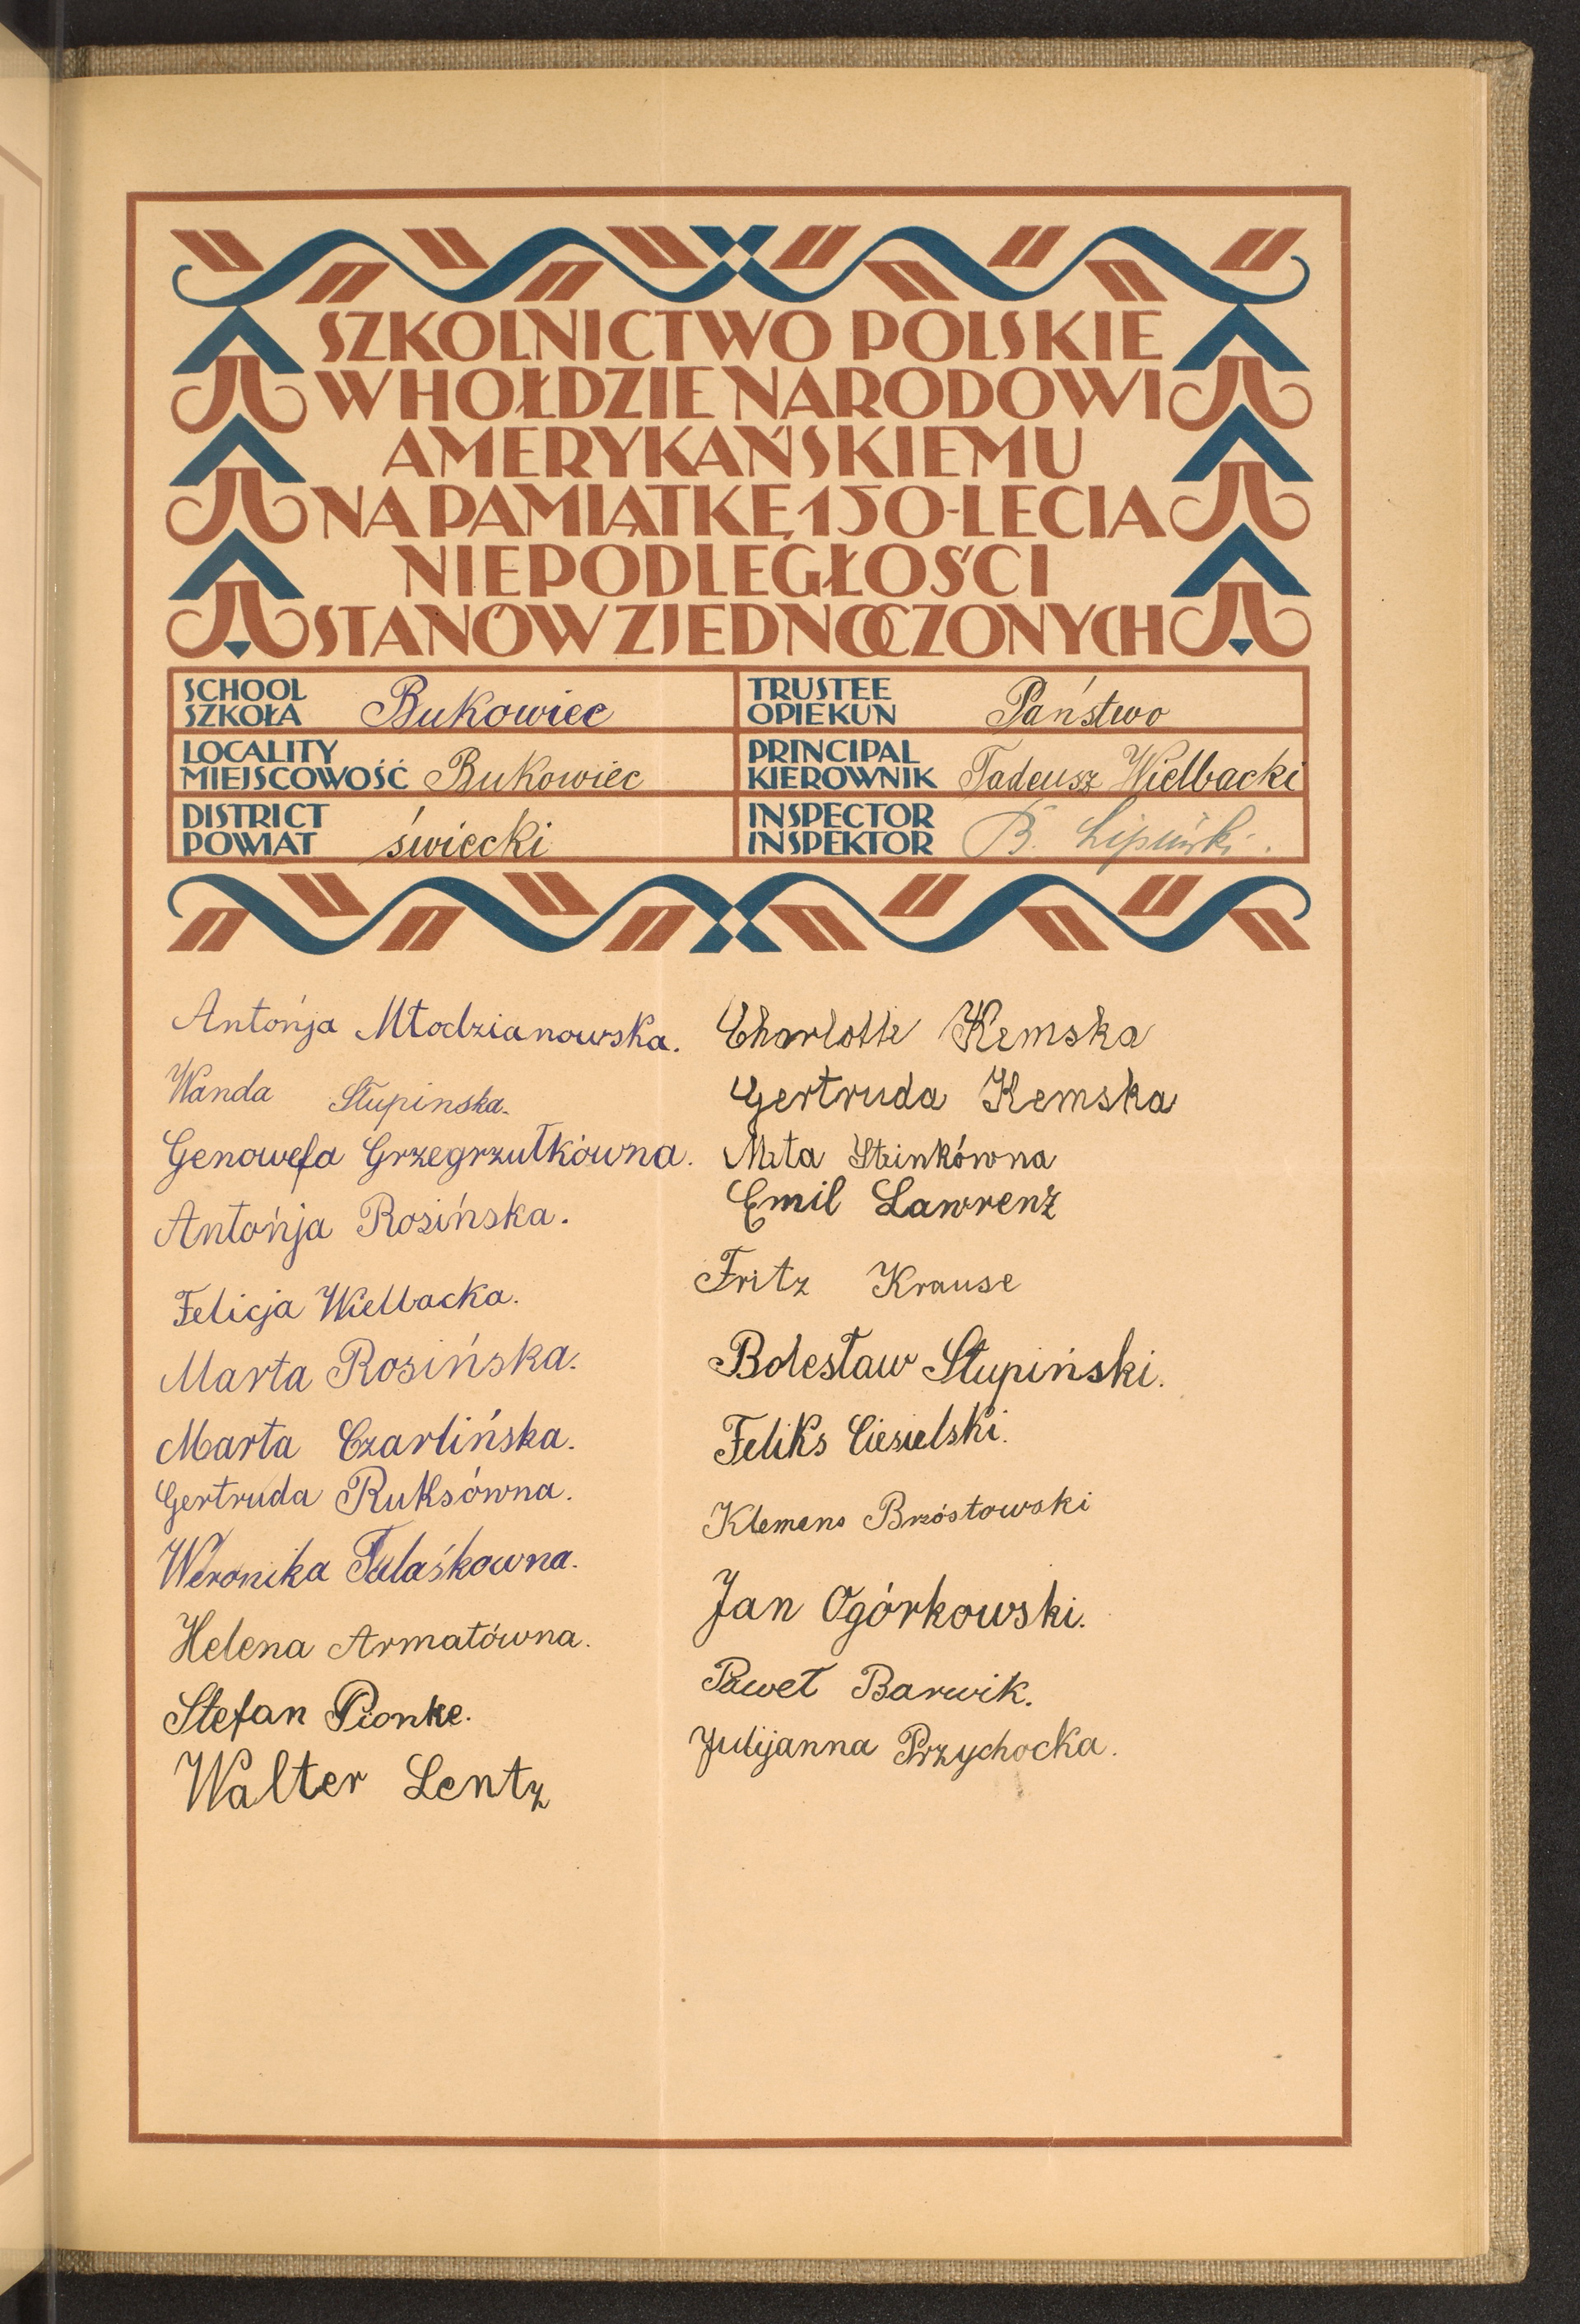 SZKOLNICTWO POLSKIE
W HOŁDZIE NARODOWI
AMERYKAŃSKIEMU
NA PAMIĄTKĘ 150-LECIA
NIEPODLEGŁOŚCI
STANÓW ZJEDNOCZONYCH
SCHOOL
SZKOŁA Bukowiec
TRUSTEE
OPIEKUN Państwo
LOCALITY
MIEJSCOWOŚĆ Bukowiec
PRINCIPAL
KIEROWNIK Tadeusz Wielbacki
DISTRICT
POWIAT świecki
INSPECTOR
INSPEKTOR B. Lipiński.
Antońja Młodzianowska.
Wanda Słupinska.
Genowefa Grzegrzułkówna.
Antońja Rosińska.
Felicja Wielbacka.
Marta Rosińska.
Marta Czarlińska.
Gertruda Ruksówna.
Weronika Talaśkowna.
Helena Armatówna.
Stefan Pionke.
Walter Lentz
Charlotte Kemska
Gertruda Kemska
Meta Steinkówna
Emil Lawrenz
Fritz Krause
Bolesław Słupiński.
Feliks Ciesielski.
Klemens Brzóstowski
Jan Ogórkowski.
Paweł Barwik.
Julijanna Przychocka.